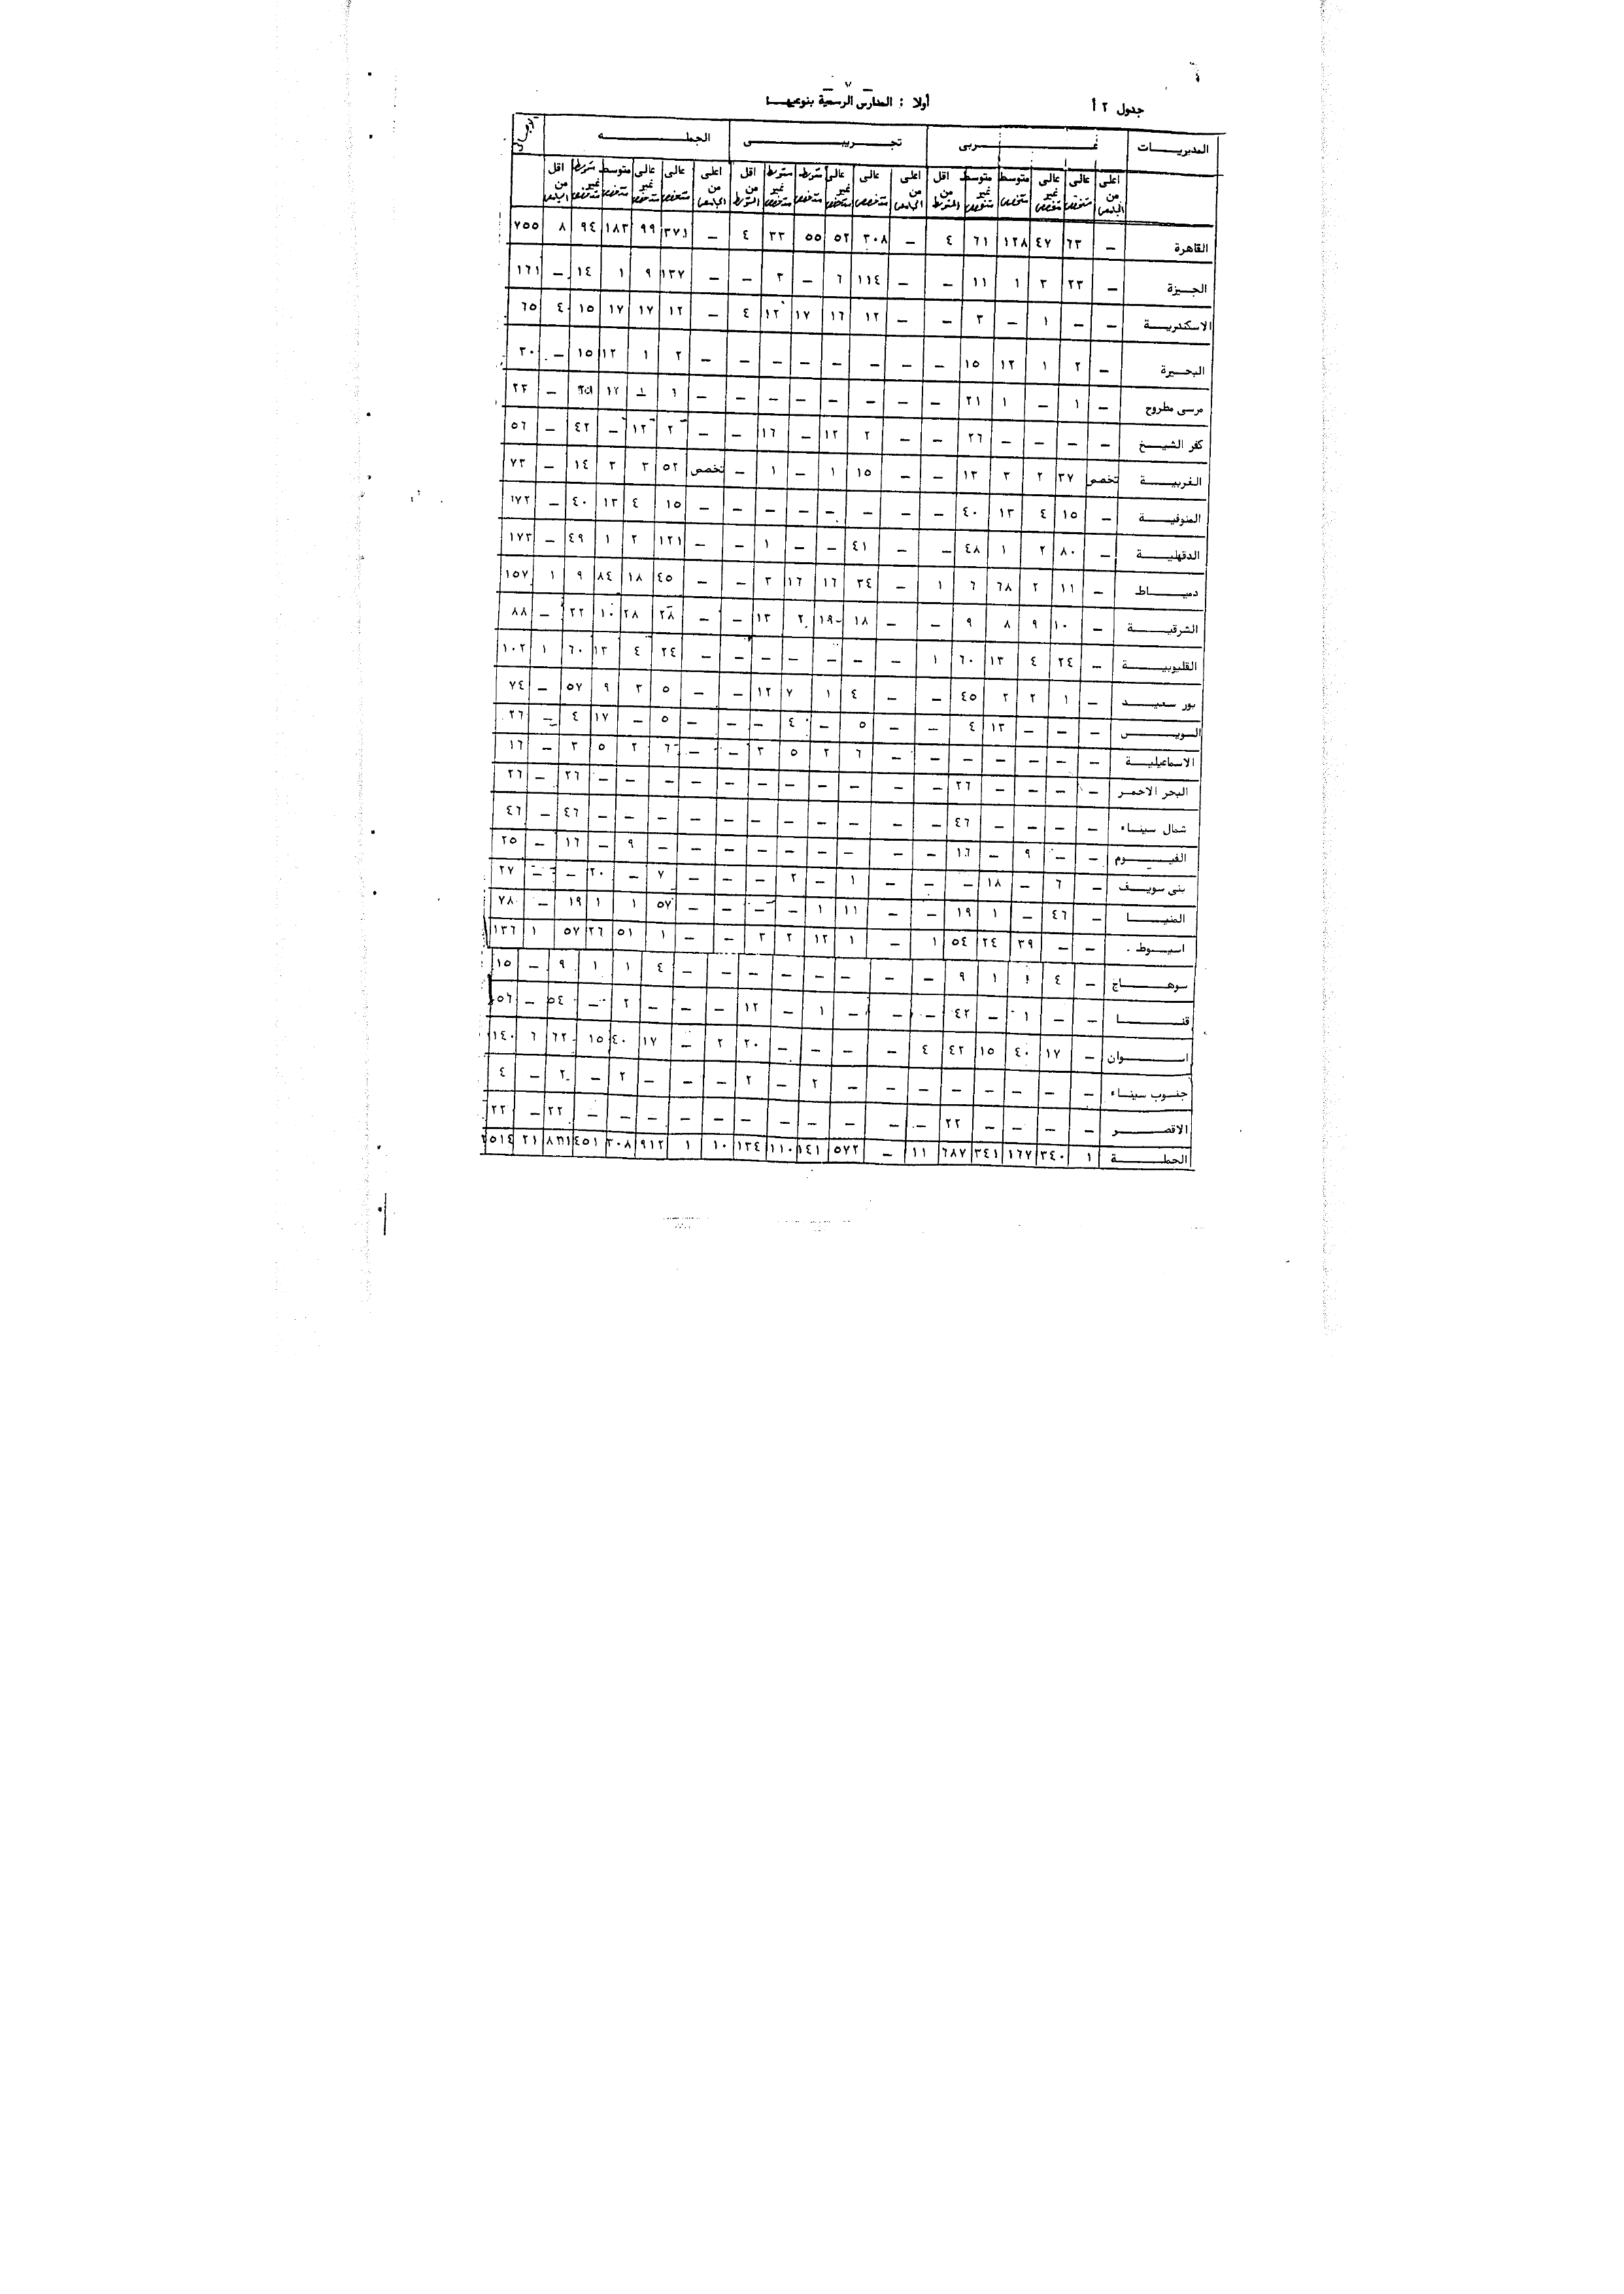 ٧
جدول ٢ أ
أولا : المدارس الرسمية بنوعيهـا
المديريـات عـربى تجـريبـى الجملـه
اعلى من عالى متخصص عالى غير متخصص متوسط متخصص متوسط غير متخصص اقل من المتوسط اعلى من عالى متخصص عالى غير متخصص متوسط متخصص متوسط غير متخصص اقل من المتوسط اعلى من عالى متخصص عالى غير متخصص متوسط متخصص متوسط غير متخصص اقل من
القاهرة — ٦٣ ٤٧ ١٢٨ ٦١ ٤ — ٣٠٨ ٥٢ ٥٥ ٣٣ ٤ — ٣٧١ ٩٩ ١٨٣ ٩٤ ٨ ٧٥٥
الجـيزة — ٢٣ ٣ ١ ١١ — — ١١٤ ٦ — ٣ — — ١٣٧ ٩ ١ ١٤ — ١٦١
الاسكندريـة — — ١ — ٣ — — ١٢ ١٦ ١٧ ١٢ ٤ — ١٢ ١٧ ١٧ ١٥ ٤ ٦٥
البحـيرة — ٢ ١ ١٢ ١٥ — — — — — — — — ٢ ١ ١٢ ١٥ — ٣٠
مرسى مطروح — ١ — ١ ٢١ — — — — — — — — ١ — ١٢ — ٢٣
كفر الشيـخ — — — — ٢٦ — — ٢ ١٢ — ١٦ — — ٢ ١٢ — ٤٢ — ٥٦
الغربيـة تخصص ٣٧ ٢ ٣ ١٣ — — ١٥ ١ — ١ — تخصص ٥٢ ٣ ٣ ١٤ — ٧٣
المنوفيـة — ١٥ ٤ ١٣ ٤٠ — — — — — — — — ١٥ ٤ ١٣ ٤٠ — ١٧٢
الدقهليـة — ٨٠ ٢ ١ ٤٨ — — ٤١ — — ١ — — ١٢١ ٢ ١ ٤٩ — ١٧٣
دميـاط — ١١ ٢ ٦٨ ٦ ١ — ٣٤ ١٦ ١٦ ٣ — — ٤٥ ١٨ ٨٤ ٩ ١ ١٥٧
الشرقيـة — ١٠ ٩ ٨ ٩ — — ١٨ ١٩ ٢ ١٣ — — ٢٨ ٢٨ ١٠ ٢٢ — ٨٨
القليوبيـة — ٢٤ ٤ ١٣ ٦٠ ١ — — — — — — — ٢٤ ٤ ١٣ ٦٠ ١ ١٠٢
بور سعيـد — ١ ٢ ٢ ٤٥ — — ٤ ١ ٧ ١٢ — — ٥ ٣ ٩ ٥٧ — ٧٤
السويـس — — — ١٣ ٤ — — ٥ — ٤ — — — ٥ — ١٧ ٤ — ٢٦
الاسماعيليـة — — — — — — — ٦ ٢ ٥ ٣ — — ٦ ٢ ٥ ٣ — ١٦
البحر الاحمـر — — — — ٢٦ — — — — — — — — — — — ٢٦ — ٢٦
شمال سينـاء — — — — ٤٦ — — — — — — — — — — — ٤٦ — ٤٦
الفيـوم — — ٩ — ١٦ — — — — — — — — — ٩ — ١٦ — ٢٥
بنى سويـف — ٦ — ١٨ — — — ١ — ٢ — — — ٧ — ٢٠ — — ٢٧
المنيـا — ٤٦ — ١ ١٩ — — ١١ ١ — — — — ٥٧ ١ ١ ١٩ — ٧٨
اسيـوط — — ٣٩ ٢٤ ٥٤ ١ — ١ ١٢ ٢ ٣ — — ١ ٥١ ٢٦ ٥٧ ١ ١٣٦
سوهـاج — ٤ ١ ١ ٩ — — — — — — — — ٤ ١ ١ ٩ — ١٥
قنـا — — ١ — ٤٢ — — — ١ — ١٢ — — — ٢ — ٥٤ — ٥٦
اسـوان — ١٧ ٤٠ ١٥ ٤٢ ٤ — — — — ٢٠ ٢ — ١٧ ٤٠ ١٥ ٦٢ ٦ ١٤٠
جنـوب سينـاء — — — — — — — — ٢ — ٢ — — — ٢ — ٢ — ٤
الاقصـر — — — — ٢٢ — — — — — — — — — — — ٢٢ — ٢٢
الجملـة ١ ٣٤٠ ١٦٧ ٣٤١ ٦٨٧ ١١ — ٥٧٢ ١٤١ ١١٠ ١٣٤ ١٠ ١ ٩١٢ ٣٠٨ ٤٥١ ٨٢١ ٢١ ٢٥١٤